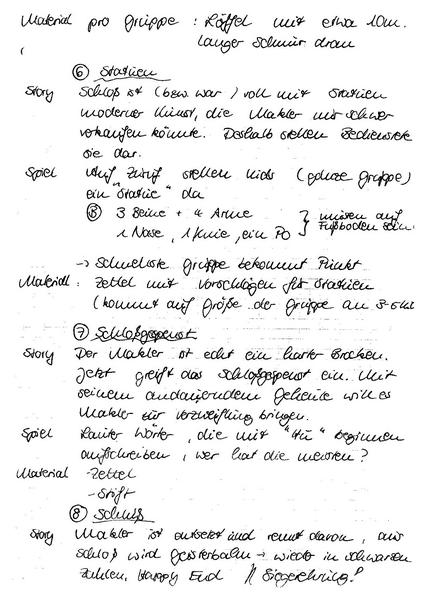 Material pro Gruppe : Löffel mit etwa 10m.
langer Schnur dran
⑥ Statuen
Story Schloß ist (bzw. war) voll mit Statuen
moderner Kunst, die Makler nur schwer
verkaufen könnte. Deshalb stellen Bedienstete
sie dar.
Spiel Auf Zuruf stellen Kids (ganze Gruppe)
ein "Statue" da
3 Beine + 4 Arme } müssen auf
1 Nase, 1 Knie, ein PO Fußboden sein.
→ Schnellste Gruppe bekommt Punkt
Material : Zettel mit Vorschlägen für Statuen
(kommt auf Größe der Gruppe an
⑦ Schloßgespenst
Story Der Makler ist echt ein harter Brocken.
Jetzt greift das Schloßgespenst ein. Mit
seinem andauerndem Geheule will es
Makler zur Verzweiflung bringen.
Spiel Lauter Wörter, die mit "Hu" beginnen
aufschreiben, wer hat die meisten?
Material - Zettel
- Stift
⑧ Schluß
Story Makler ist entsetzt und rennt davon, aus
Schloß wird Geisterbahn → wieder in schwarzen
Zahlen, Happy End // Siegerehrung!